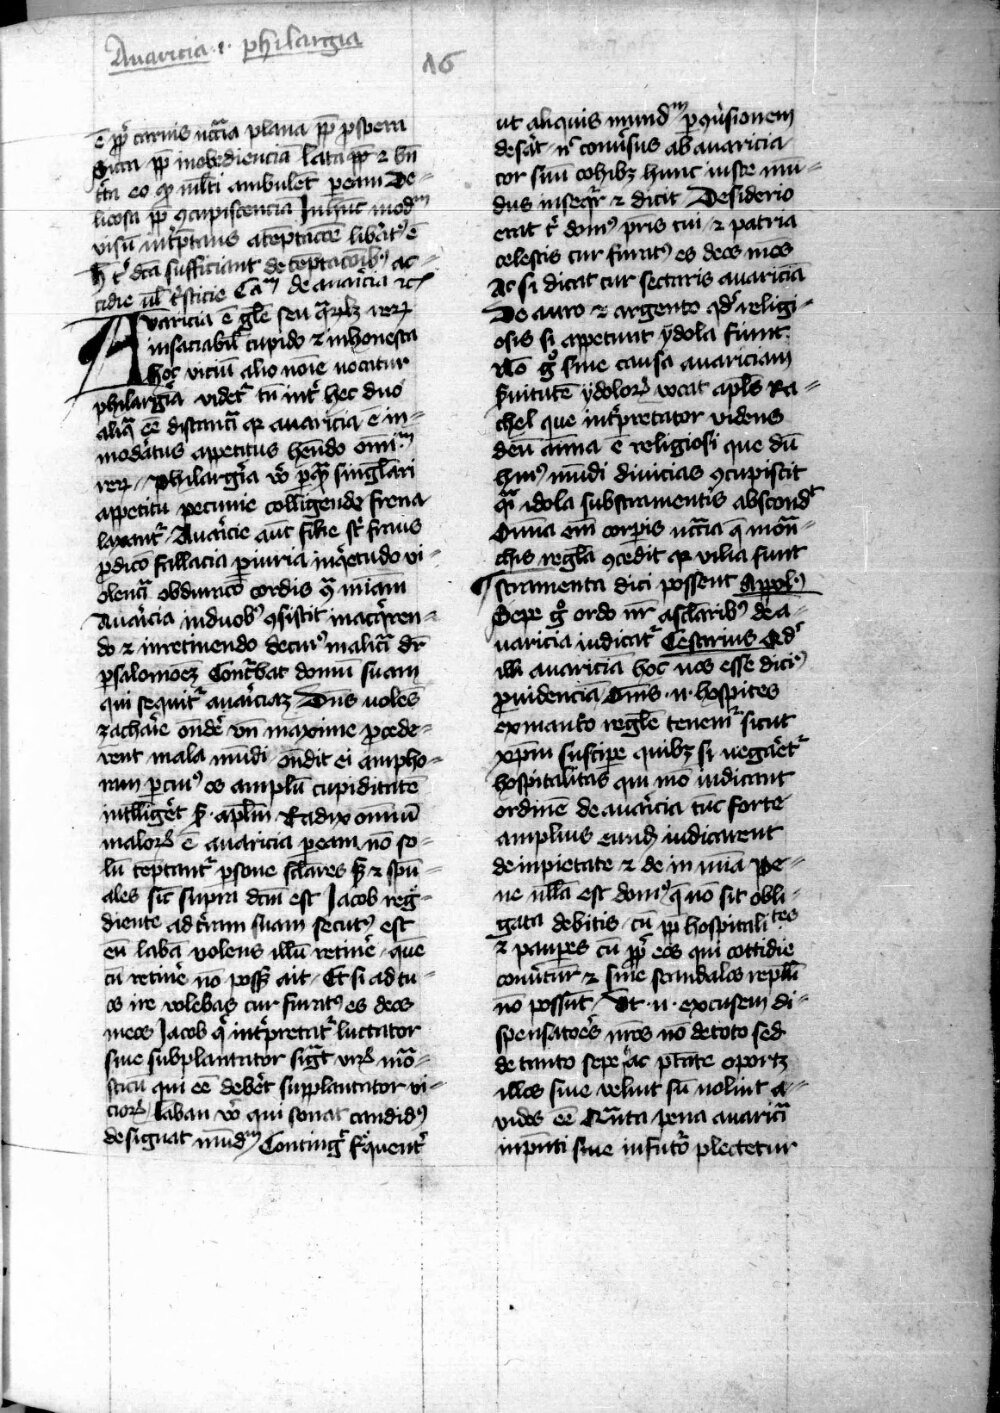 Auaricia .i. philargia
16
ē ꝓpt̄ carnis nc̄c̄ia plana ꝓpt̄ ꝓspera
sicca ꝓpt̄ inobedienciā lata ꝓpt̄ ⁊
eo ꝙ ml̄ti ambulēt ꝑ eam De⸗
licosa ꝓpt̄ ꝯcupiscencia Jn hūc modᵐ
visū int̄p̄tans a temptacōe lib̄atꝰ ē
dc̄a sufficiant de temptacōibꝰ ac⸗
cidie ul̄ t̄sticie Caᵐ de auaricia
Avaricia ē gl̄e seu q̄rūlibꝫ rerꝝ
insaciabil̓ cupido ⁊ inhonesta
hoc viciū alio noīe uocatur
philargia videt̄ tn̄ int̄ hec duo
aliq̄ eē distanc̄ ꝗꝛ auaricia ē in⸗
modātus appetitus hēndo omīᵐ
rerꝝ philargia v̄o singl̄ari
appetitu pecunie colligende frena
laxant̄ Auaricie aūt filie st̄ fraus
ꝓdicō fallacia ꝑiuria inq̄etudo vi⸗
olenc̄ obduracō cordis ꝯ̄ mīam
Auaricia in duobꝰ ꝯsistit in acq̄ren⸗
do ⁊ in retinendo de cuiꝰ malic̄ dr̄
ꝑ salomoēꝫ Cont̄bat domū suam
qui sequit̄ auariciaꝫ Dn̄s uolēs
zacharie oñdē vn̄ maxime ꝓcede⸗
rent mala mūdi oñdit ei ampho⸗
ram ꝑ cuiꝰ os amplū cupiditatē
intlligēt s apl̄m Radix omniū
malorꝝ ē auaricia ꝑ eam nō so⸗
lū temptant̄ ꝑsone sc̄lares sꝫ ⁊ spū⸗
ales sic̄ supra dcm̄ est Jacob reg̓⸗
diente ad t̄ram suam secutꝰ est
eū labā volens illū retinē quē
cū retinē nō poss̄ ait Et si ad tu⸗
os ire volebas cur furatꝰ es deos
meos Jacob q̄ int̄pretat̄ luctator
siue subplantator sig̓t virꝝ mō⸗
sticū qui eē debet supplantator vi⸗
ciorꝝ laban v̄o qui sonat candidꝰ
designat mūdᵐ Conting̓ f̄quent̄
ut aliquis mundᵐ ꝑ ꝯūsionem
desāt n̄ conūsus ab auaricia
cor suū cohibꝫ hunc iuste mū⸗
dus inseqt̄ ⁊ dicit Desiderio
erat t̄ domꝰ pr̄is tui ⁊ patria
celestis cur furatꝰ es deos meos
Ac si dicat cur sectaris auariciā
De auro ⁊ argento qd̄ religi⸗
osis si appetunt ydola sunt
Nō gͦ sine causa auariciam
s̄uitutē ydolorꝝ vocat apl̄s Ra⸗
chel que int̄pretator videns
deū anima ē religiosi que dū
huiꝰ mūdi diuicias ꝯcupiscit
q̄i idola sub stramentis abscondᵗ
Omnia em̄ corꝑis nc̄c̄ia q̄ mōn⸗
chis regl̄a ꝯcedit ꝗꝛ vilia sunt
stramenta dici possent Appolꝰ
Sepe gͦ ordo nr̄ a sc̄laribꝰ de a⸗
uaricia iudicat̄ Cesarius Qd̄
illi auariciā hoc nos esse dicīꝰ
ꝓuidenciā Om̄s n̄ hospites
ex mandato regl̄e tenemꝰ sicut
xp̄m suscipe quibꝫ si negāet̄
hospitalitas qui mō iudicant
ordinē de auaricia tūc forte
amplius eundē iudicarent
de inpietate ⁊ de in mīa Pe⸗
ne nulla est domꝰ q̄ nō sit obli⸗
gata debitis cū ꝓpt̄ hospitalitᵗᵉˢ
⁊ pauꝑes cū ꝓpt̄ eos qui cottidie
conūtūt̄ ⁊ sine scandalos repl̄i
nō possūt Vt n̄ excusem di⸗
spensatoēs nr̄os nō de toto sed
de tanto sepe ac oportꝫ
illos siue velint siū nolint a⸗
uidos eē Qn̄ta pena auaric̄
inpn̄ti siue in fut̄o plectetur